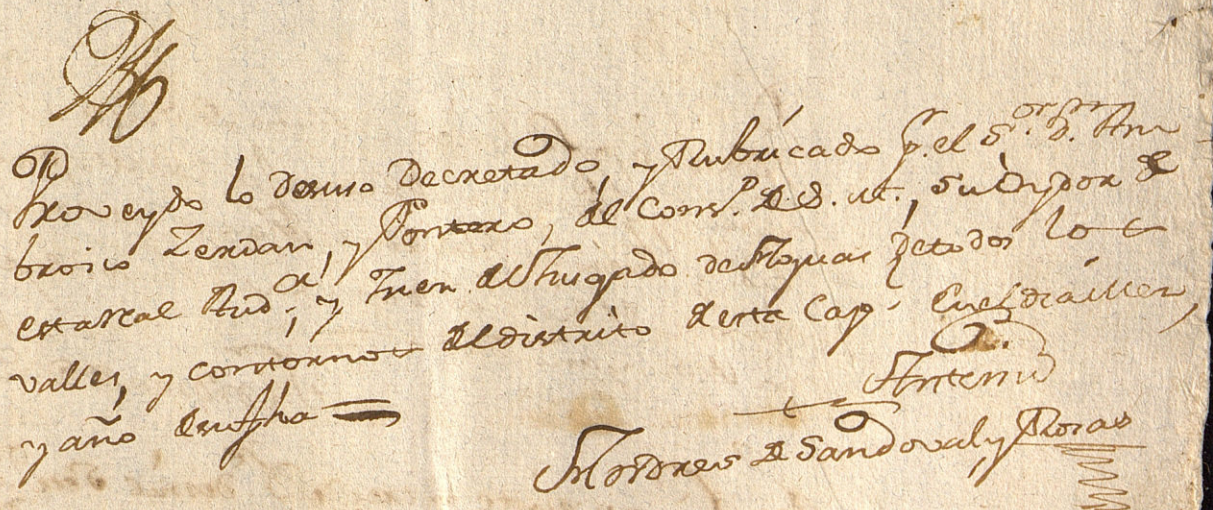 Proveydo lo desuso Decretado, y Rubricado p.r el S.or D.n Am
brosio Zerdan, y Pontero, del Cons.o de S. M., su Oydor de
esta Real Aud.a, y Juez del Jusgado de Aguas de todos los
valles, y contornos del distrito de esta Cap.l En el dia, mes,
y año de su fha =
Antemi
Andres de Sandoval, y Rosas